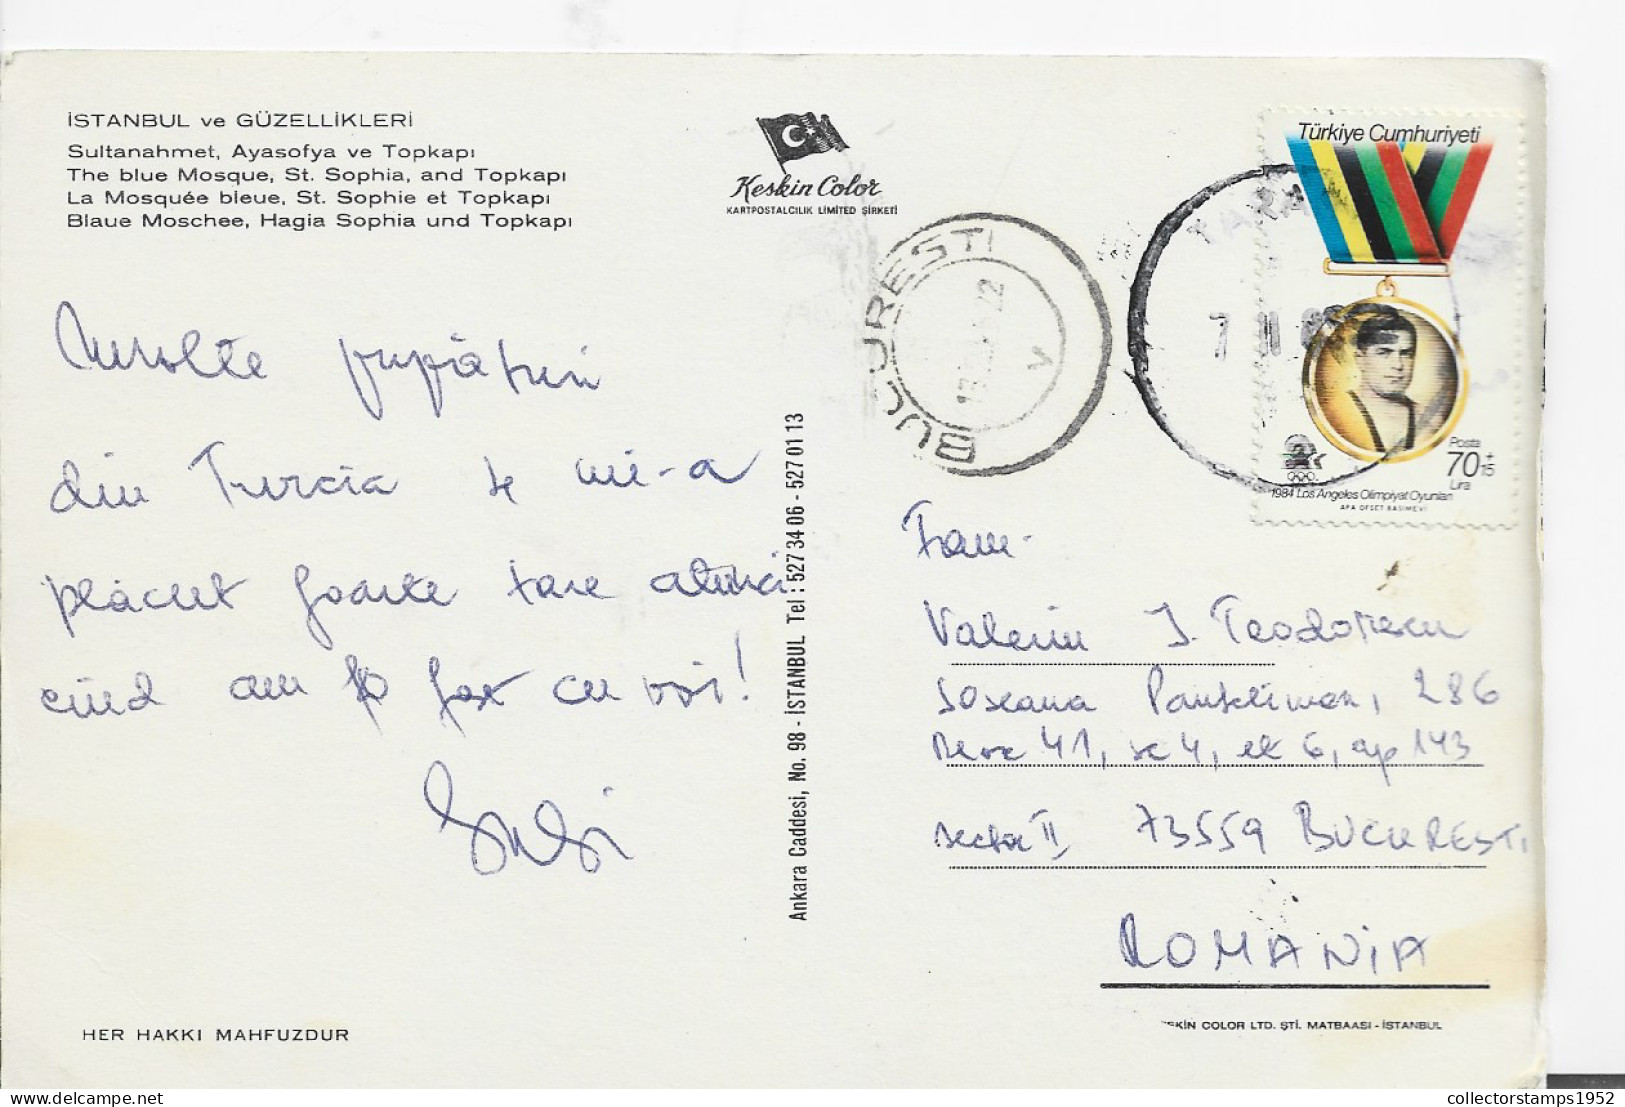 İSTANBUL ve GÜZELLİKLERİ
Sultanahmet, Ayasofya ve Topkapı
The blue Mosque, St. Sophia, and Topkapı
La Mosquée bleue, St. Sophie et Topkapı
Blaue Moschee, Hagia Sophia und Topkapı
Keskin Color
KARTPOSTALCILIK LIMITED ŞİRKETİ
BUCURESTI
V
7 11
Türkiye Cumhuriyeti
Posta
70+15
Lira
1984 Los Angeles Olimpiyat Oyunları
APA OFSET BASIMEVİ
Multe
din Turcia mi-a
plăcut foarte tare atunci
cînd am fost cu voi!
Ankara Caddesi, No. 98 - İSTANBUL Tel : 527 34 06 - 527 01 13
Fam.
Valeriu I. Teodorescu
Soseana Pantelimon, 286
Bloc 41, sc 4, et 6, ap 143
sector II, 73559 BUCURESTI
ROMANIA
HER HAKKI MAHFUZDUR
KESKİN COLOR LTD. ŞTİ. MATBAASI - İSTANBUL
collectorstamps1952